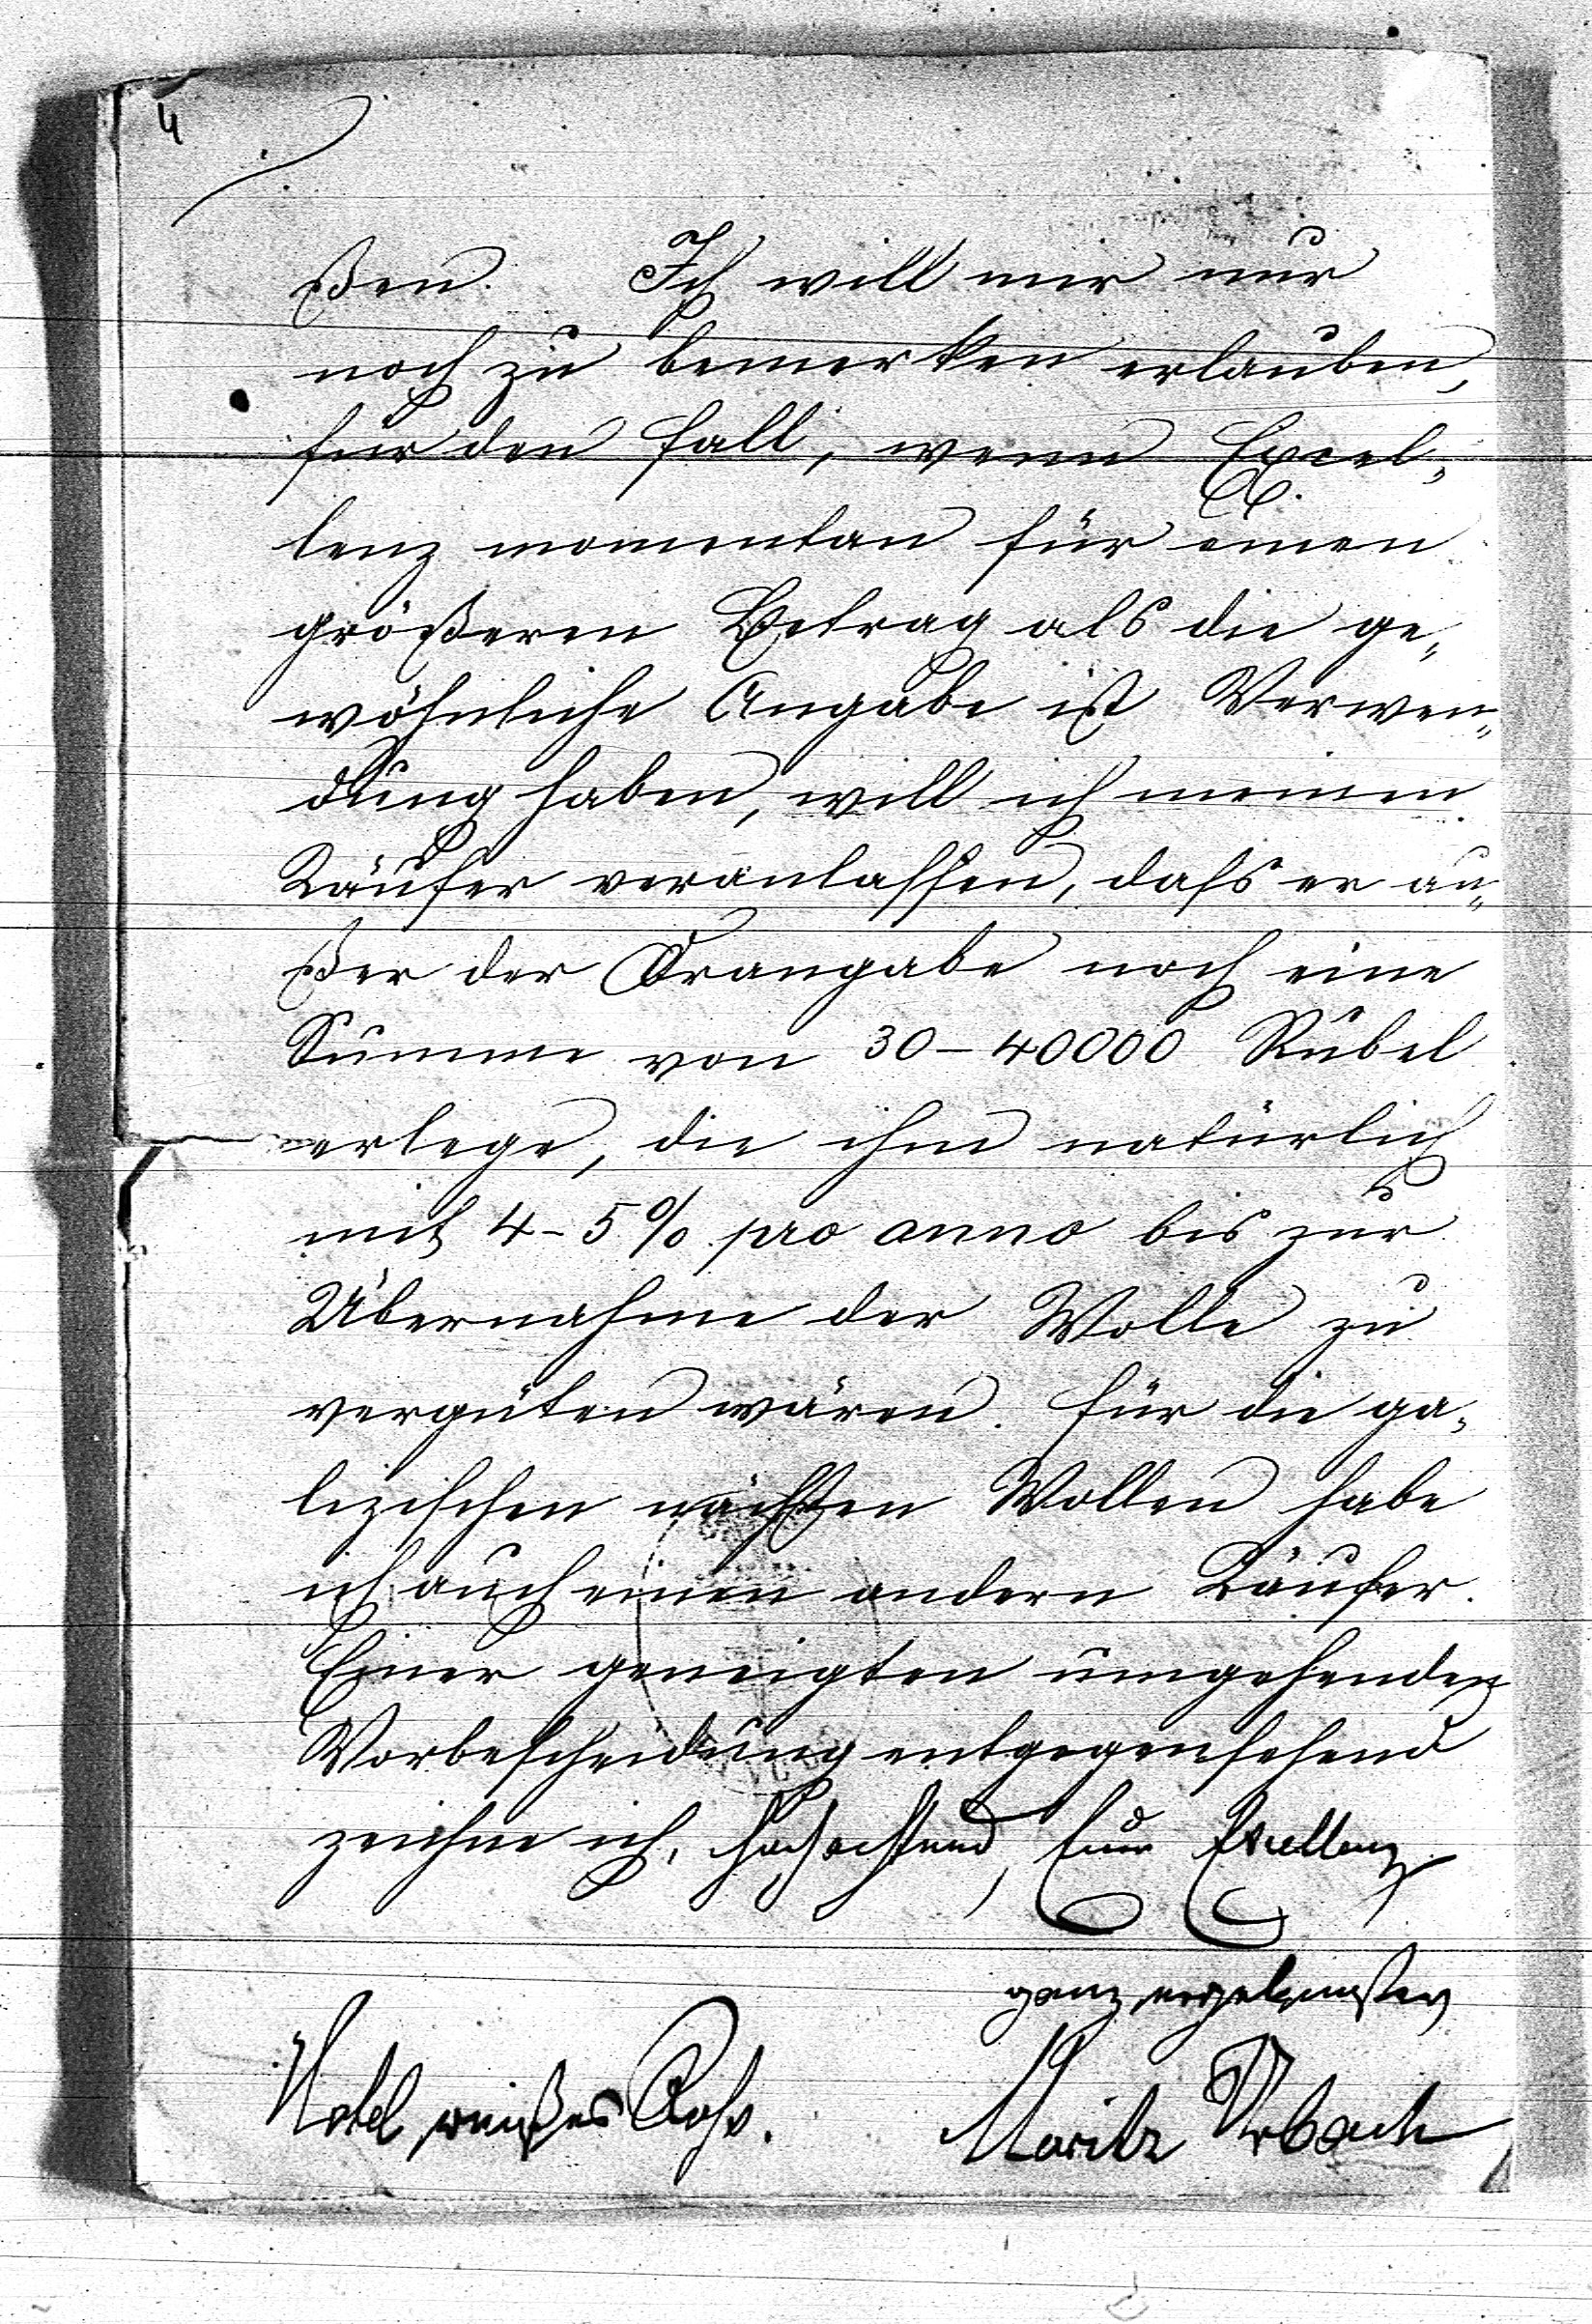 4
ßen. Ich will mir nur
noch zu bemerken erlauben,
für den Fall, wenn Excel„
lenz momentan für einen
größeren Betrag als die ge„
wöhnliche Angabe ist Verwen„
dung haben, will ich meinen
Käufer veranlassen, dass er au„
ßer der Drangabe noch eine
Summe von 30-40000 Rubel
erlege, die ihm natürlich
mit 4-5% pro anno bis zur
Übernahme der Wolle zu
vergüten wären. Für die ga„
lizischen Wollen habe
ich auch einen andern Käufer.
Einer geneigten umgehenden
Vorbescheidung entgegensehend
zeichne ich, hochachtend, Euer Excellenz
ganz ergebenster
Hotel weißes Roß. Moritz Urbach